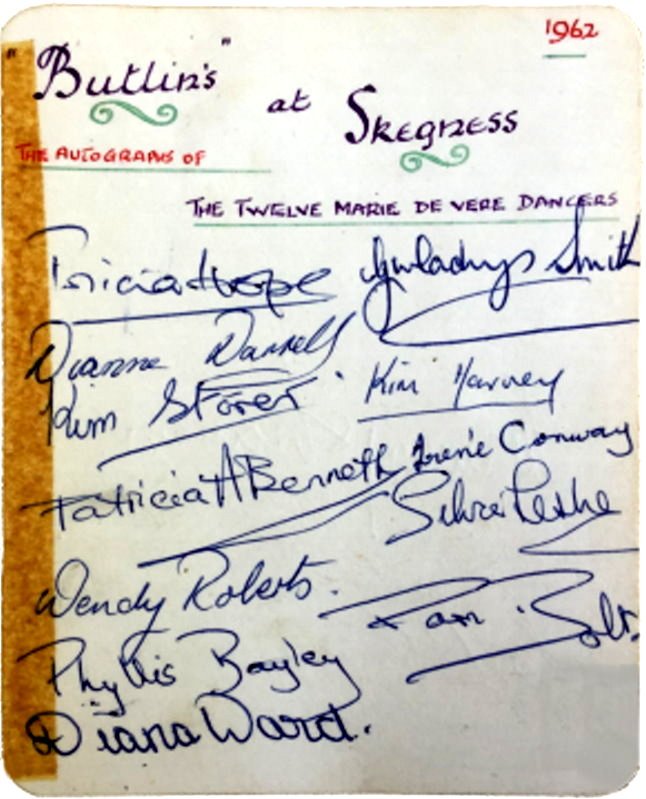 1962
"Butlin's" at Skegness
THE AUTOGRAPHS OF
THE TWELVE MARIE DE VERE DANCERS
Tricia Hope Gwladnys Smith
Dianne Darrell
Kim Storer Kim Harvey
Patricia A Bennett Irene Conway
Wendy Roberts.
Pam
Phyllis Bayley
Diana Ward.